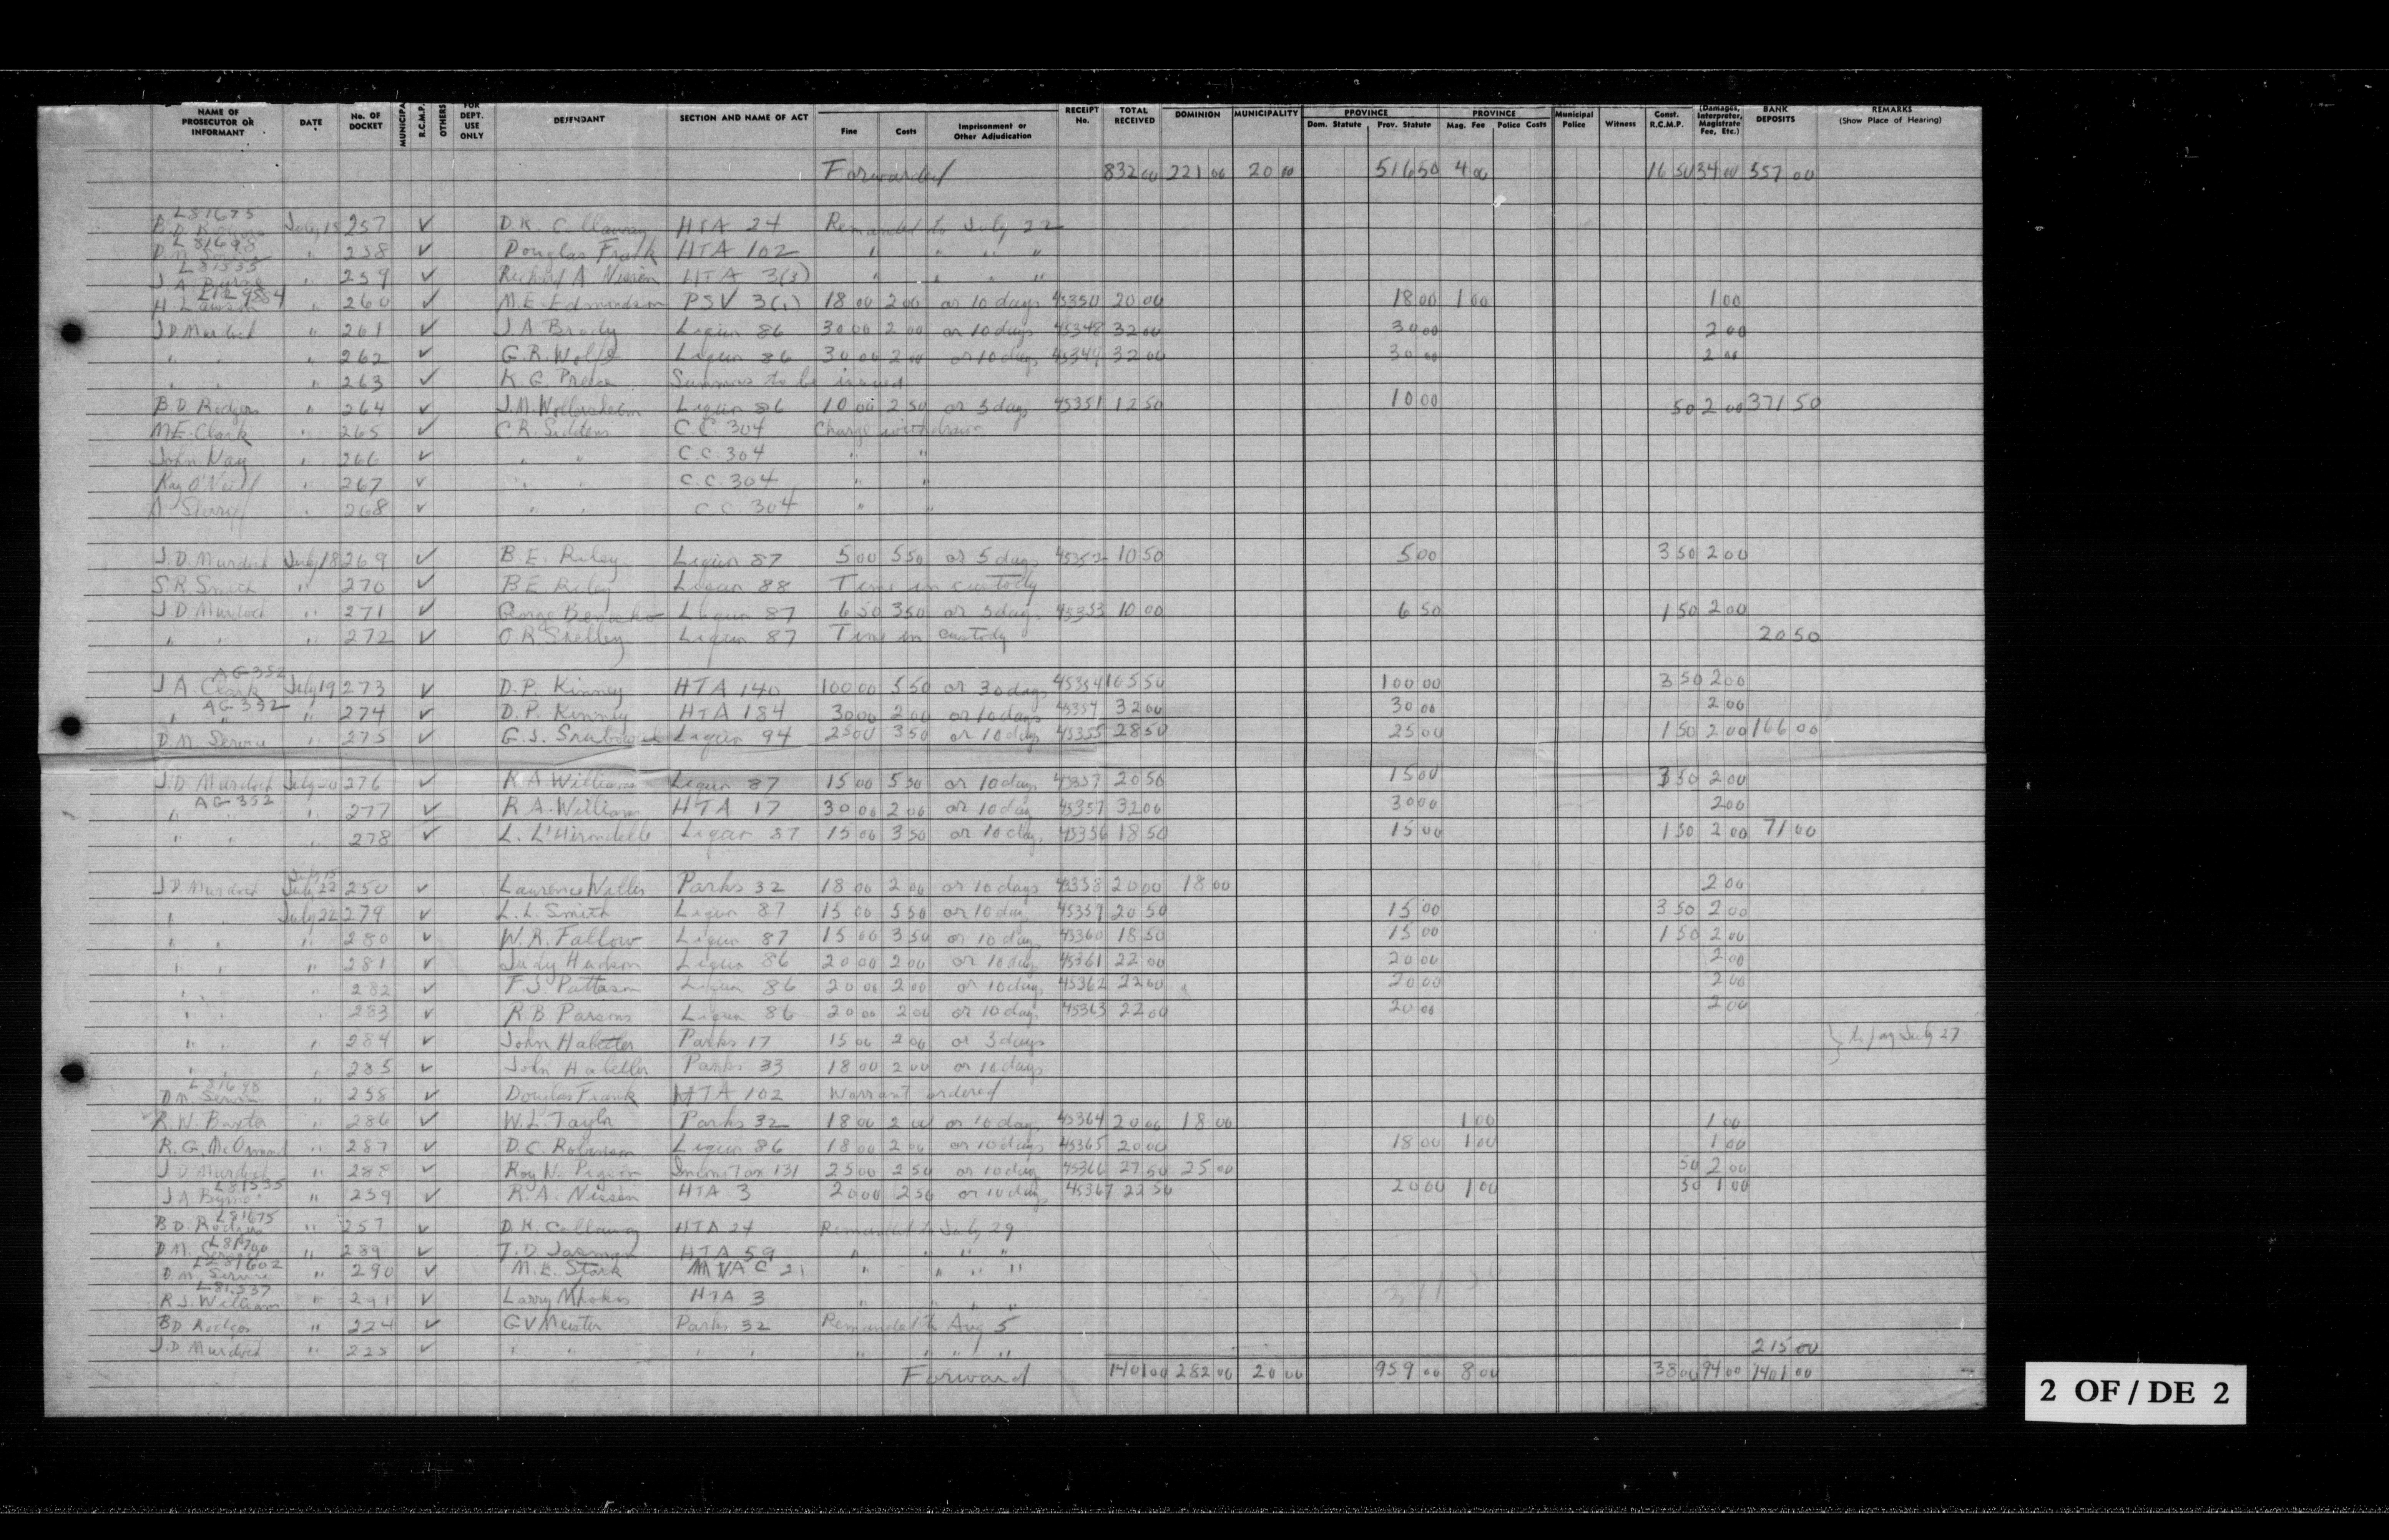 NAME OF PROSECUTOR OR INFORMANT DATE No. OF DOCKET MUNICIPAL R.C.M.P. OTHERS FOR DEPT. USE ONLY DEFENDANT SECTION AND NAME OF ACT Fine Costs Imprisonment or Other Adjudication RECEIPT No. TOTAL RECEIVED DOMINION MUNICIPALITY PROVINCE Dom. Statute Prov. Statute PROVINCE Mag. Fee Police Costs Municipal Police Witness Const. R.C.M.P. (Damages, Interpreter, Magistrate Fee, Etc.) BANK DEPOSITS REMARKS (Show Place of Hearing)
Forwarded 832 00 221 00 20 00 516 50 4 00 16 50 34 00 557 00
L81675
B.D. Rodgers July 15 257 ✓ D.K. Callaway HTA 24 Remanded to July 22
L81698
258 ✓ Douglas Frank HTA 102 " " " "
L81535
259 ✓ Richard A Nissen HTA 3(3) " " " "
H. Lawson " 260 ✓ M.E. Edmondson PSV 3(1) 18 00 2 00 or 10 days 45350 20 00 18 00 1 00 1 00
J D Murdoch " 261 ✓ J A Brody Liquor 86 30 00 2 00 or 10 days 45348 32 00 30 00 2 00
" " " 262 ✓ G.R. Wolfe Liquor 86 30 00 2 00 or 10 days 45349 32 00 30 00 2 00
" " " 263 ✓ K.G. Summons to be issued
B.D. Rodgers " 264 ✓ J.M. Liquor 86 10 00 2 50 or 5 days 45351 12 50 10 00 50 2 00 371 50
M.E. Clark " 265 ✓ C.R. Siddens C.C. 304 Charge withdrawn
John Nay " 266 ✓ " " C.C. 304 " "
Ray O'Neill " 267 ✓ " " C.C. 304 " "
" 268 ✓ " " C.C. 304 " "
J.D. Murdoch July 18 269 ✓ B.E. Riley Liquor 87 5 00 5 50 or 5 days 45352 10 50 5 00 3 50 2 00
S.R. Smith " 270 ✓ B E Riley Liquor 88 Time in custody
J D Murdoch " 271 ✓ George Liquor 87 6 50 3 50 or 5 days 45353 10 00 6 50 1 50 2 00
" " " 272 ✓ O R Shelley Liquor 87 Time in custody 20 50
AG 352
J A. Clark July 19 273 ✓ D.P. Kinney HTA 140 100 00 5 50 or 30 days 45354 105 50 100 00 3 50 2 00
AG 352
" " " 274 ✓ D.P. Kinney HTA 184 30 00 2 00 or 10 days 45354 32 00 30 00 2 00
D.M. Service " 275 ✓ G.J. Liquor 94 25 00 3 50 or 10 days 45355 28 50 25 00 1 50 2 00 166 00
J.D Murdoch July 20 276 ✓ R A Williams Liquor 87 15 00 5 50 or 10 days 45357 20 50 15 00 3 50 2 00
AG 352
" " " 277 ✓ R.A. William HTA 17 30 00 2 00 or 10 days 45357 32 00 30 00 2 00
" " " 278 ✓ L. L'Hirondelle Liquor 87 15 00 3 50 or 10 days 45356 18 50 15 00 1 50 2 00 71 00
July 15
J.D. Murdoch July 22 250 ✓ Lawrence Willis Parks 32 18 00 2 00 or 10 days 45358 20 00 18 00 2 00
" " July 22 279 ✓ L.L. Smith Liquor 87 15 00 5 50 or 10 days 45359 20 50 15 00 3 50 2 00
" " " 280 ✓ W.R. Fallow Liquor 87 15 00 3 50 or 10 days 45360 18 50 15 00 1 50 2 00
" " " 281 ✓ Judy Hudson Liquor 86 20 00 2 00 or 10 days 45361 22 00 20 00 2 00
" " " 282 ✓ F.J. Pattason Liquor 86 20 00 2 00 or 10 days 45362 22 00 20 00 2 00
" " " 283 ✓ R.B. Parsons Liquor 86 20 00 2 00 or 10 days 45363 22 00 20 00 2 00
" " " 284 ✓ John Habetler Parks 17 15 00 2 00 or 3 days to pay July 27
" " " 285 ✓ John Habetler Parks 33 18 00 2 00 or 10 days
L81698
D.M. Service " 258 ✓ Douglas Frank HTA 102 Warrant ordered
R.W. Baxter " 286 ✓ W.L. Taylor Parks 32 18 00 2 00 or 10 days 45364 20 00 18 00 1 00 1 00
R.G. McOrmond " 287 ✓ D.C. Robinson Liquor 86 18 00 2 00 or 10 days 45365 20 00 18 00 1 00 1 00
J D Murdoch " 288 ✓ Roy N. Pigeon Income Tax 131 25 00 2 50 or 10 days 45366 27 50 25 00 50 2 00
L81535
J A. Byrne " 259 ✓ R.A. Nissen HTA 3 20 00 2 50 or 10 days 45367 22 50 20 00 1 00 50 1 00
L81675
B D. Rodgers " 257 ✓ D.K. Callaway HTA 24 Remanded to July 29
D.M. Service " 289 ✓ J.D. HTA 59 " " " "
D.M. Service " 290 ✓ M.E. Stark MVAC 21 " " " "
L81537
R.J. William " 291 ✓ Larry HTA 3 " " " "
B D Rodgers " 224 ✓ G V Meister Parks 32 Remanded to Aug 5
J.D Murdoch " 225 ✓ " " " " " " " " 215 00
Forward 1401 00 282 00 20 00 959 00 8 00 38 00 94 00 1401 00
2 OF / DE 2